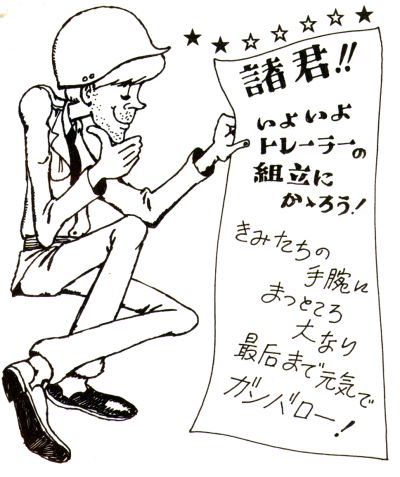 諸君!!
いよいよ
トレーラーの
組立に
かゝろう!
きみたちの
手腕に
まつところ
大なり
最后まで元気で
ガンバロー!